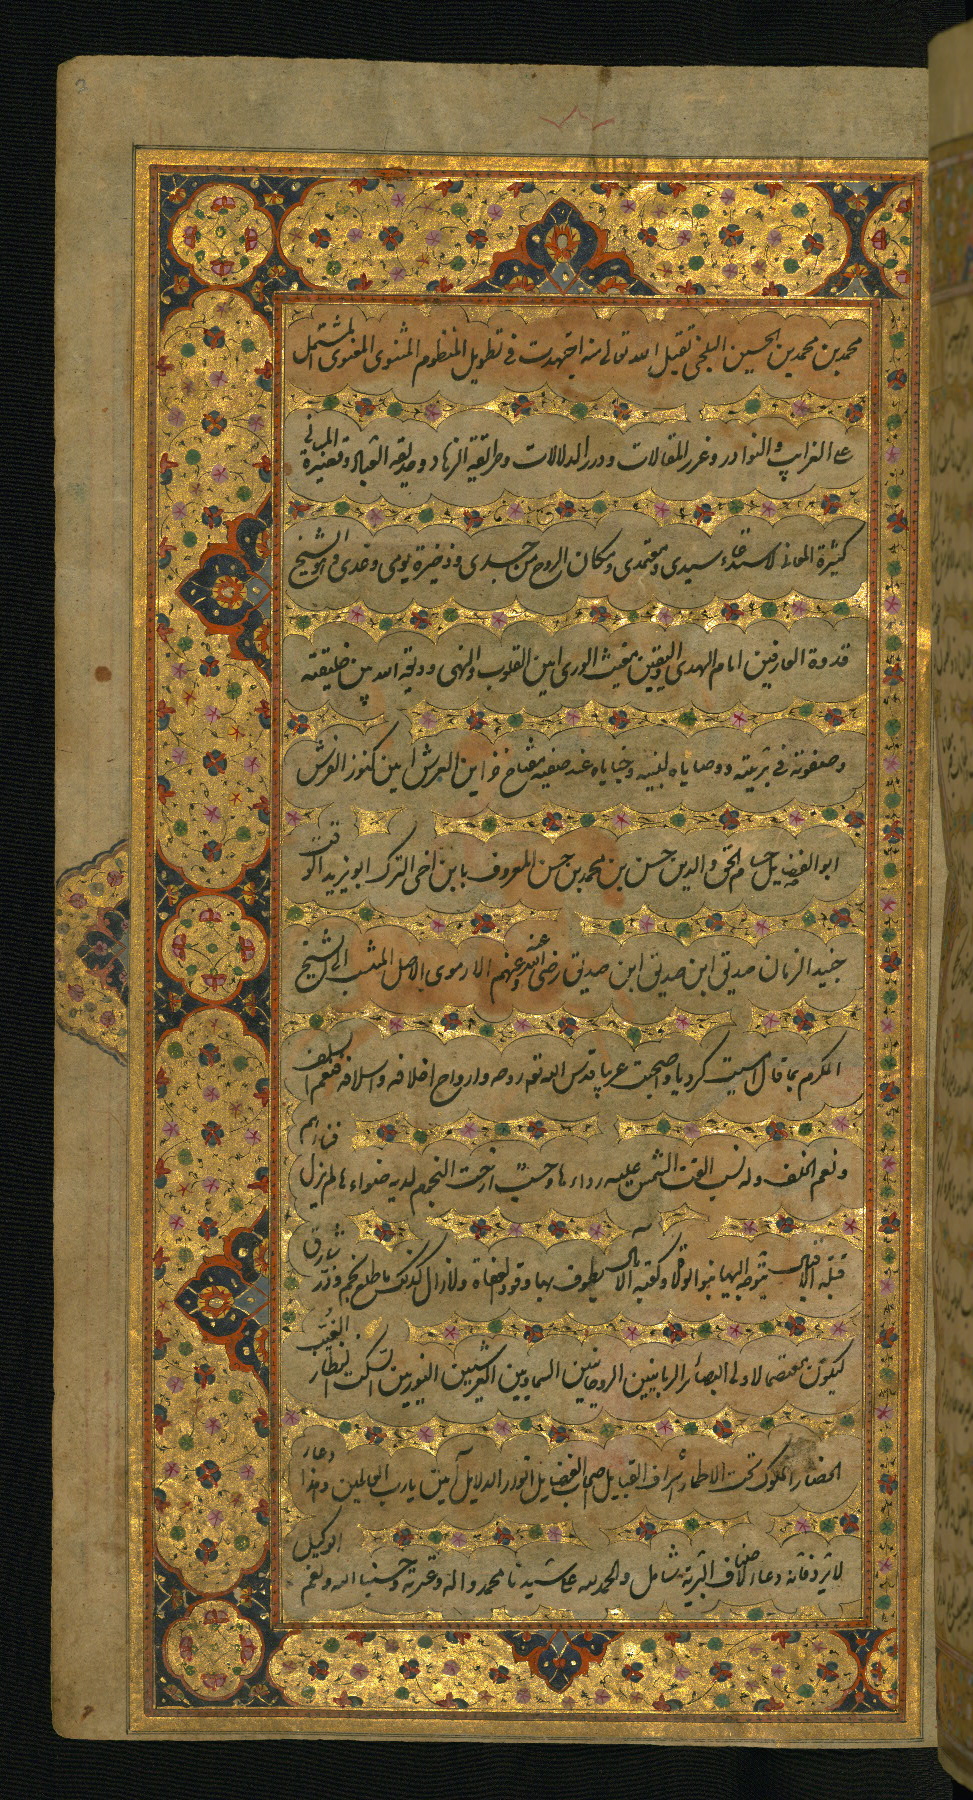 محمد بن محمد بن الحسین البلخی تقبل الله تعالی منه اجتهدت فی تطویل المنظوم المثنوی المعنوی المشتمل
علی الغرایب و النوادر و غرر المقالات و درر الدلالات و طریقة الزهاد و حدیقة العباد و قصیرة المبانی
کثیرة المعانی لاستدعاء سیدی و معتمدی و مکان الروح من جسدی و ذخیرة یومی و غدی و هو الشیخ
قدوة العارفین امام الهدی و الیقین مغیث الوری امین القلوب و النهی و ودیعة الله بین خلیقته
و صفوته فی بریته و وصایاه لنبیه و خبایاه عند صفیه مفتاح خزاین العرش امین کنوز الفرش
ابو الفضایل حسام الحق و الدین حسن بن محمد بن حسن المعروف بابن اخی الترک ابو یزید الوقت
جنید الزمان صدیق ابن صدیق ابن صدیق رضی الله عنه و عنهم الارموی الاصل المنتسب الی الشیخ
المکرم بما قال امسیت کردیا و اصبحت عربیا قدس الله تعه روحه و ارواح اخلافه و اسلافه فنعم السلف
و نعم الخلف و له نسب القت الشمس علیه رداءها و حسب ارخت النجوم لدیه ضواءها لم یزل فناءهم
قبلة الاقبال یتوجه الیها بنو الولاة و کعبة الآمال یطوف بها وفود العفاة و لازال کذلک ما طلع نجم و ذر شارق
لیکون معتصما لاولی البصائر الربانیین الروحانیین السماویین العرشیین النوریین السکت النظار الغیب
الحضار الملوک تحت الاطمار اشراف القبایل اصحاب الفضایل انوار الدلایل آمین یارب العالمین و هذا دعاء
لا یرد فانه دعاء لاصناف البریة شامل و الحمد لله علی سیدنا محمد و اله و عترته و حسبنا الله و نعم الوکیل